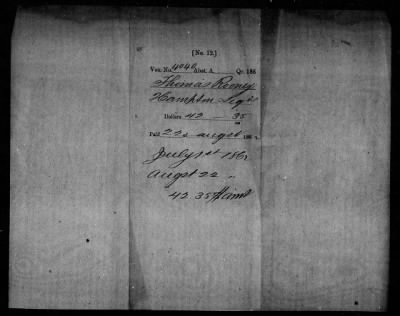 [No. 12.]
Vou. No. 4046, Abst. A. Qr. 186
Thomas Rooney
Hampton Leg
Dollars 42 35
Paid 22d August 186
July 1st 186
Augst 22
42 35